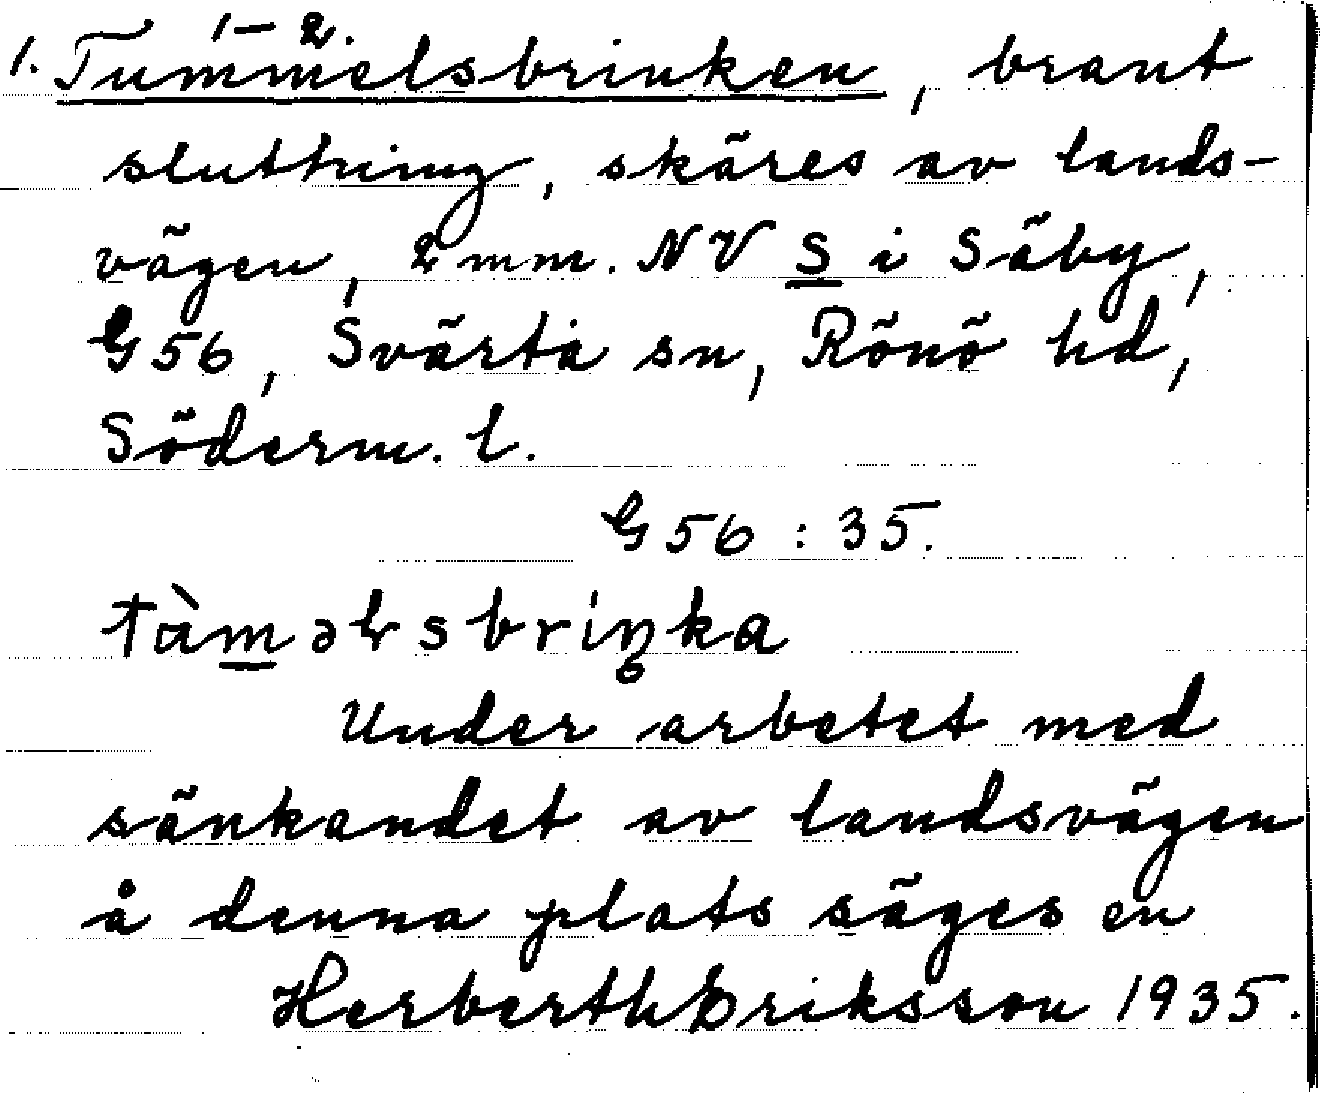 1-2.
1. Tummelsbrinken, brant
sluttning, skäres av lands-
vägen, 2 mm. NV S i Säby,
G56, Svärta sn, Rönö hd,
Söderm. l.
G56:35.
tàməɫsbriŋka
Under arbetet med
sänkandet av landsvägen
å denna plats säges en
Herberth Eriksson 1935.